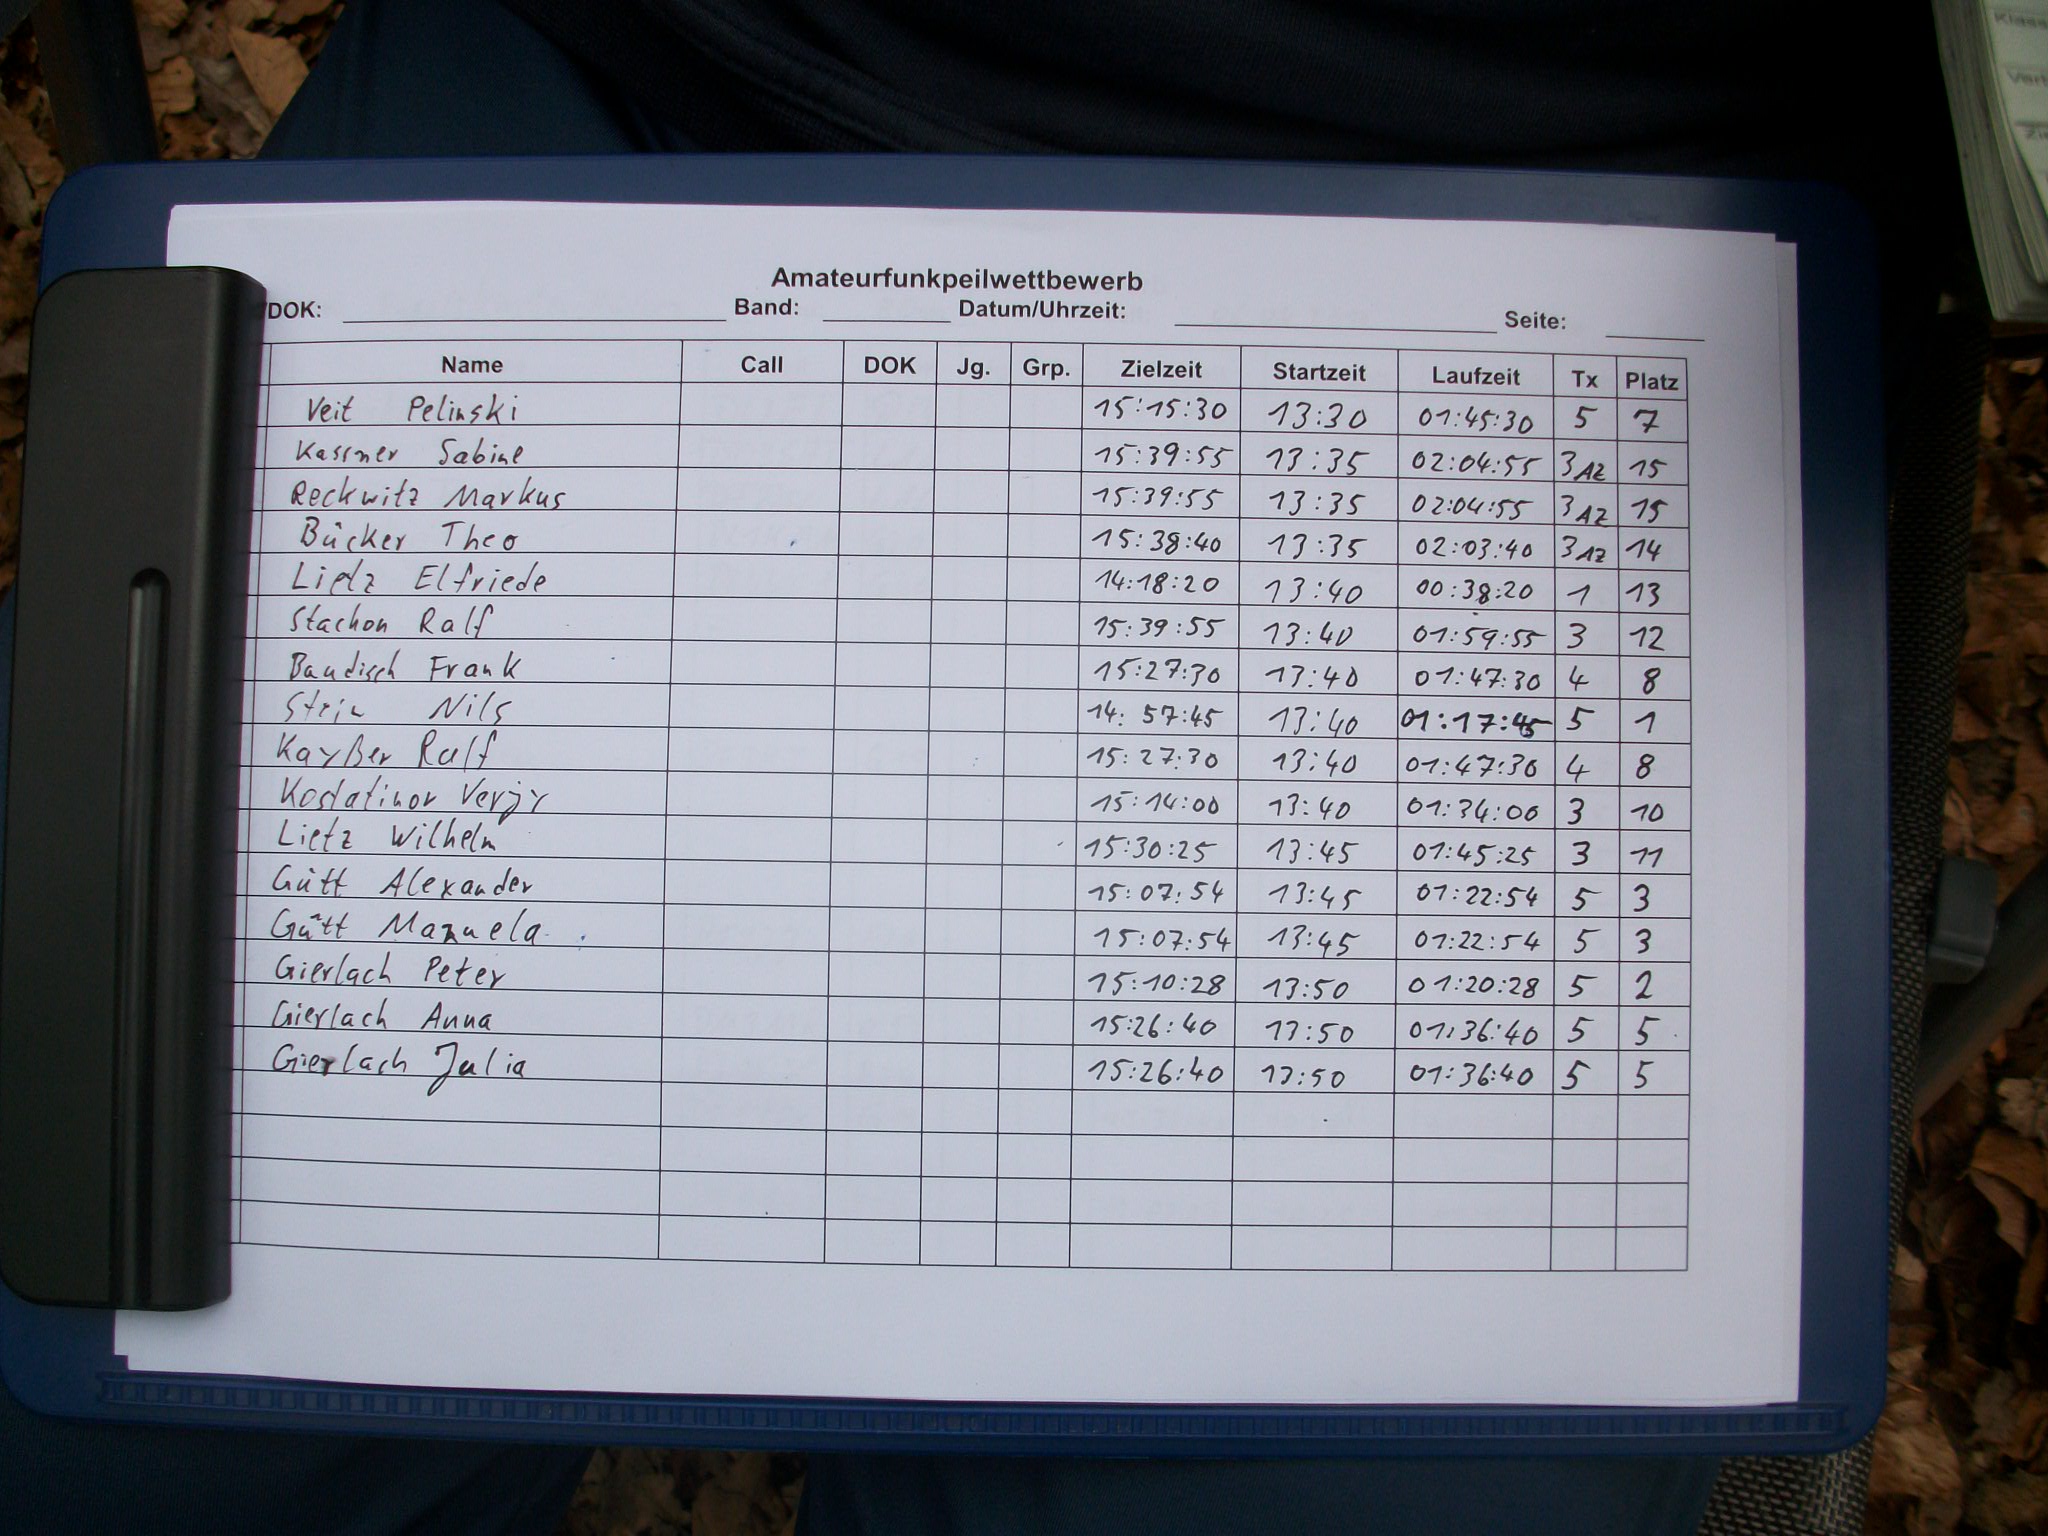 Amateurfunkpeilwettbewerb
DOK: Band: Datum/Uhrzeit: Seite:
Name Call DOK Jg. Grp. Zielzeit Startzeit Laufzeit Tx Platz
Veit Pelinski 15:15:30 13:30 01:45:30 5 7
Kassner Sabine 15:39:55 13:35 02:04:55 3 AZ 15
Reckwitz Markus 15:39:55 13:35 02:04:55 3 AZ 15
Bücker Theo 15:38:40 13:35 02:03:40 3 AZ 14
Lietz Elfriede 14:18:20 13:40 00:38:20 1 13
Stachon Ralf 15:39:55 13:40 01:59:55 3 12
Baudisch Frank 15:27:30 13:40 01:47:30 4 8
Stein Nils 14:57:45 13:40 01:17:45 5 1
Kayßer Ralf 15:27:30 13:40 01:47:30 4 8
15:14:00 13:40 01:34:00 3 10
Lietz Wilhelm 15:30:25 13:45 01:45:25 3 11
Gütt Alexander 15:07:54 13:45 01:22:54 5 3
Gütt Manuela 15:07:54 13:45 01:22:54 5 3
Gierlach Peter 15:10:28 13:50 01:20:28 5 2
Gierlach Anna 15:26:40 13:50 01:36:40 5 5
Gierlach Julia 15:26:40 13:50 01:36:40 5 5